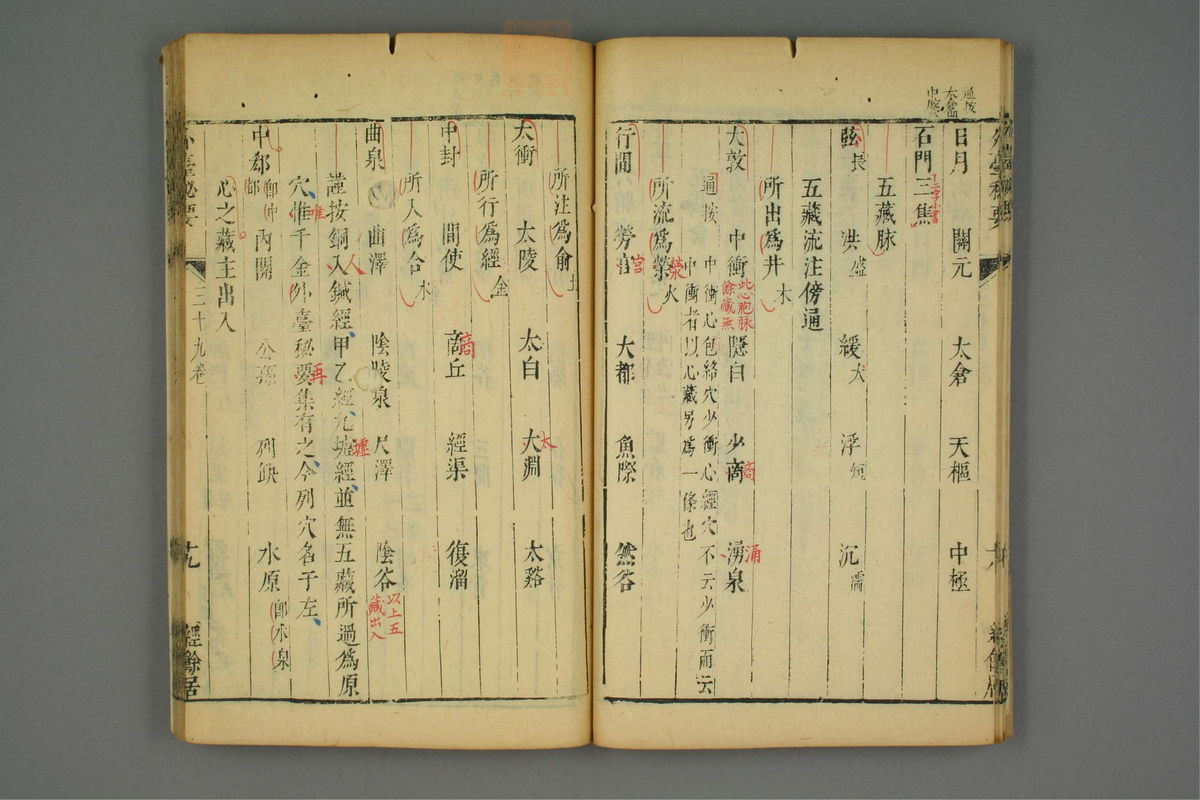 通按
太倉即
中脘
外臺秘要
日月 關元 太倉 天樞 中極
石門三焦
三字小書
五藏脉
弦長 洪盛 緩大 浮短 沉濡
五藏流注傍通
所出為井木
大敦 中衝 隠白 少商 湧泉
此心胞脉
餘藏無
商
涌
通按 中衝心包絡穴少衝心經穴不云少衝而云
中衝者以心藏另為一條也
所流為榮火
滎
行間 勞宫 大都 魚際 然谷
宮
所注為俞土
太衝 太陵 太白 大淵 太谿
太
所行為經金
中封 間使 商丘 經渠 復溜
商
所入為合水
曲泉 曲澤 陰陵泉 尺澤 陰谷
以上五
藏出入
謹按銅入鍼經甲乙經九墟經並無五藏所過為原
人
墟
穴惟千金外臺秘要集有之今列穴名于左
唯
再
中郄即中郄 內關 公孫 列缺 水原即水泉
心之藏主出入
外臺秘要 三十九卷 十九 經餘居